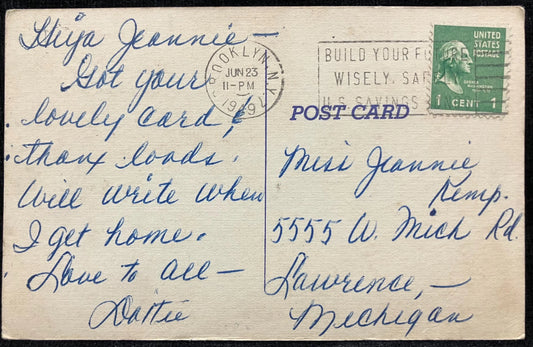 Hiya Jeannie —
Got your
lovely card &
thanx loads.
Will write when
I get home.
Love to all —
Dottie
BROOKLYN, N.Y.
JUN 23
11-PM
1949
BUILD YOUR
WISELY,
U.S. SAVINGS
UNITED
STATES
POSTAGE
1 CENT 1
POST CARD
Miss Jeannie
Kemp.
5555 W. Mich Rd.
Lawrence, —
Michigan